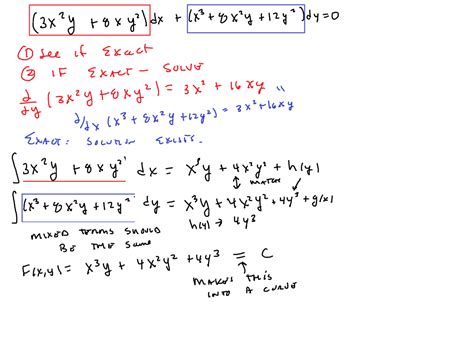 (3x²y + 8xy²)dx + (x³ + 8x²y + 12y²)dy = 0
① See if Exact
② IF EXACT - SOLVE
d/dy (3x²y + 8xy²) = 3x² + 16xy
d/dx (x³ + 8x²y + 12y²) = 3x² + 16xy
EXACT: SOLUTION EXISTS.
∫ 3x²y + 8xy² dx = x³y + 4x²y² + h(y)
↕ MATCH
∫ (x³ + 8x²y + 12y² dy = x³y + 4x²y² + 4y³ + g(x)
MIXED TERMS SHOULD BE THE SAME
h(y) → 4y³
F(x,y) = x³y + 4x²y² + 4y³ = C
MAKES THIS
INTO A CURVE